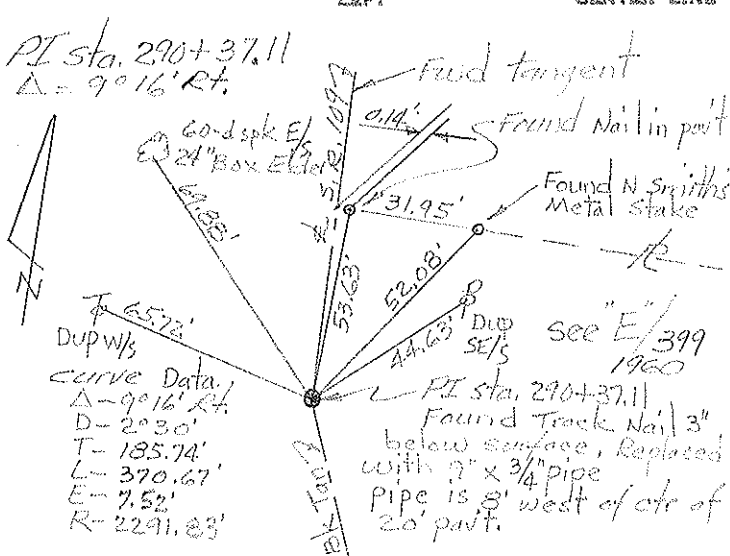 PI sta. 290+37.11
Δ = 9°16' Rt.
Fwd tangent
0.14'
Found Nail in pav't
60-d spk E/s
24" Box Elder
S.R. 109
Found N Smith's
Metal Stake
31.95'
69.88'
53.63'
52.08'
N
65.72'
Dup W/s
44.63'
Dup
SE/s
see "E"/399
1960
curve Data.
Δ - 9°16' Rt.
D - 2°30'
T - 185.74'
L - 370.67'
E - 7.52'
R - 2291.83'
PI sta. 290+37.11
Found Track Nail 3"
below surface, Replaced
with 9" x 3/4" pipe
pipe is .8' west of ctr of
20' pavt.
Bk Tan.